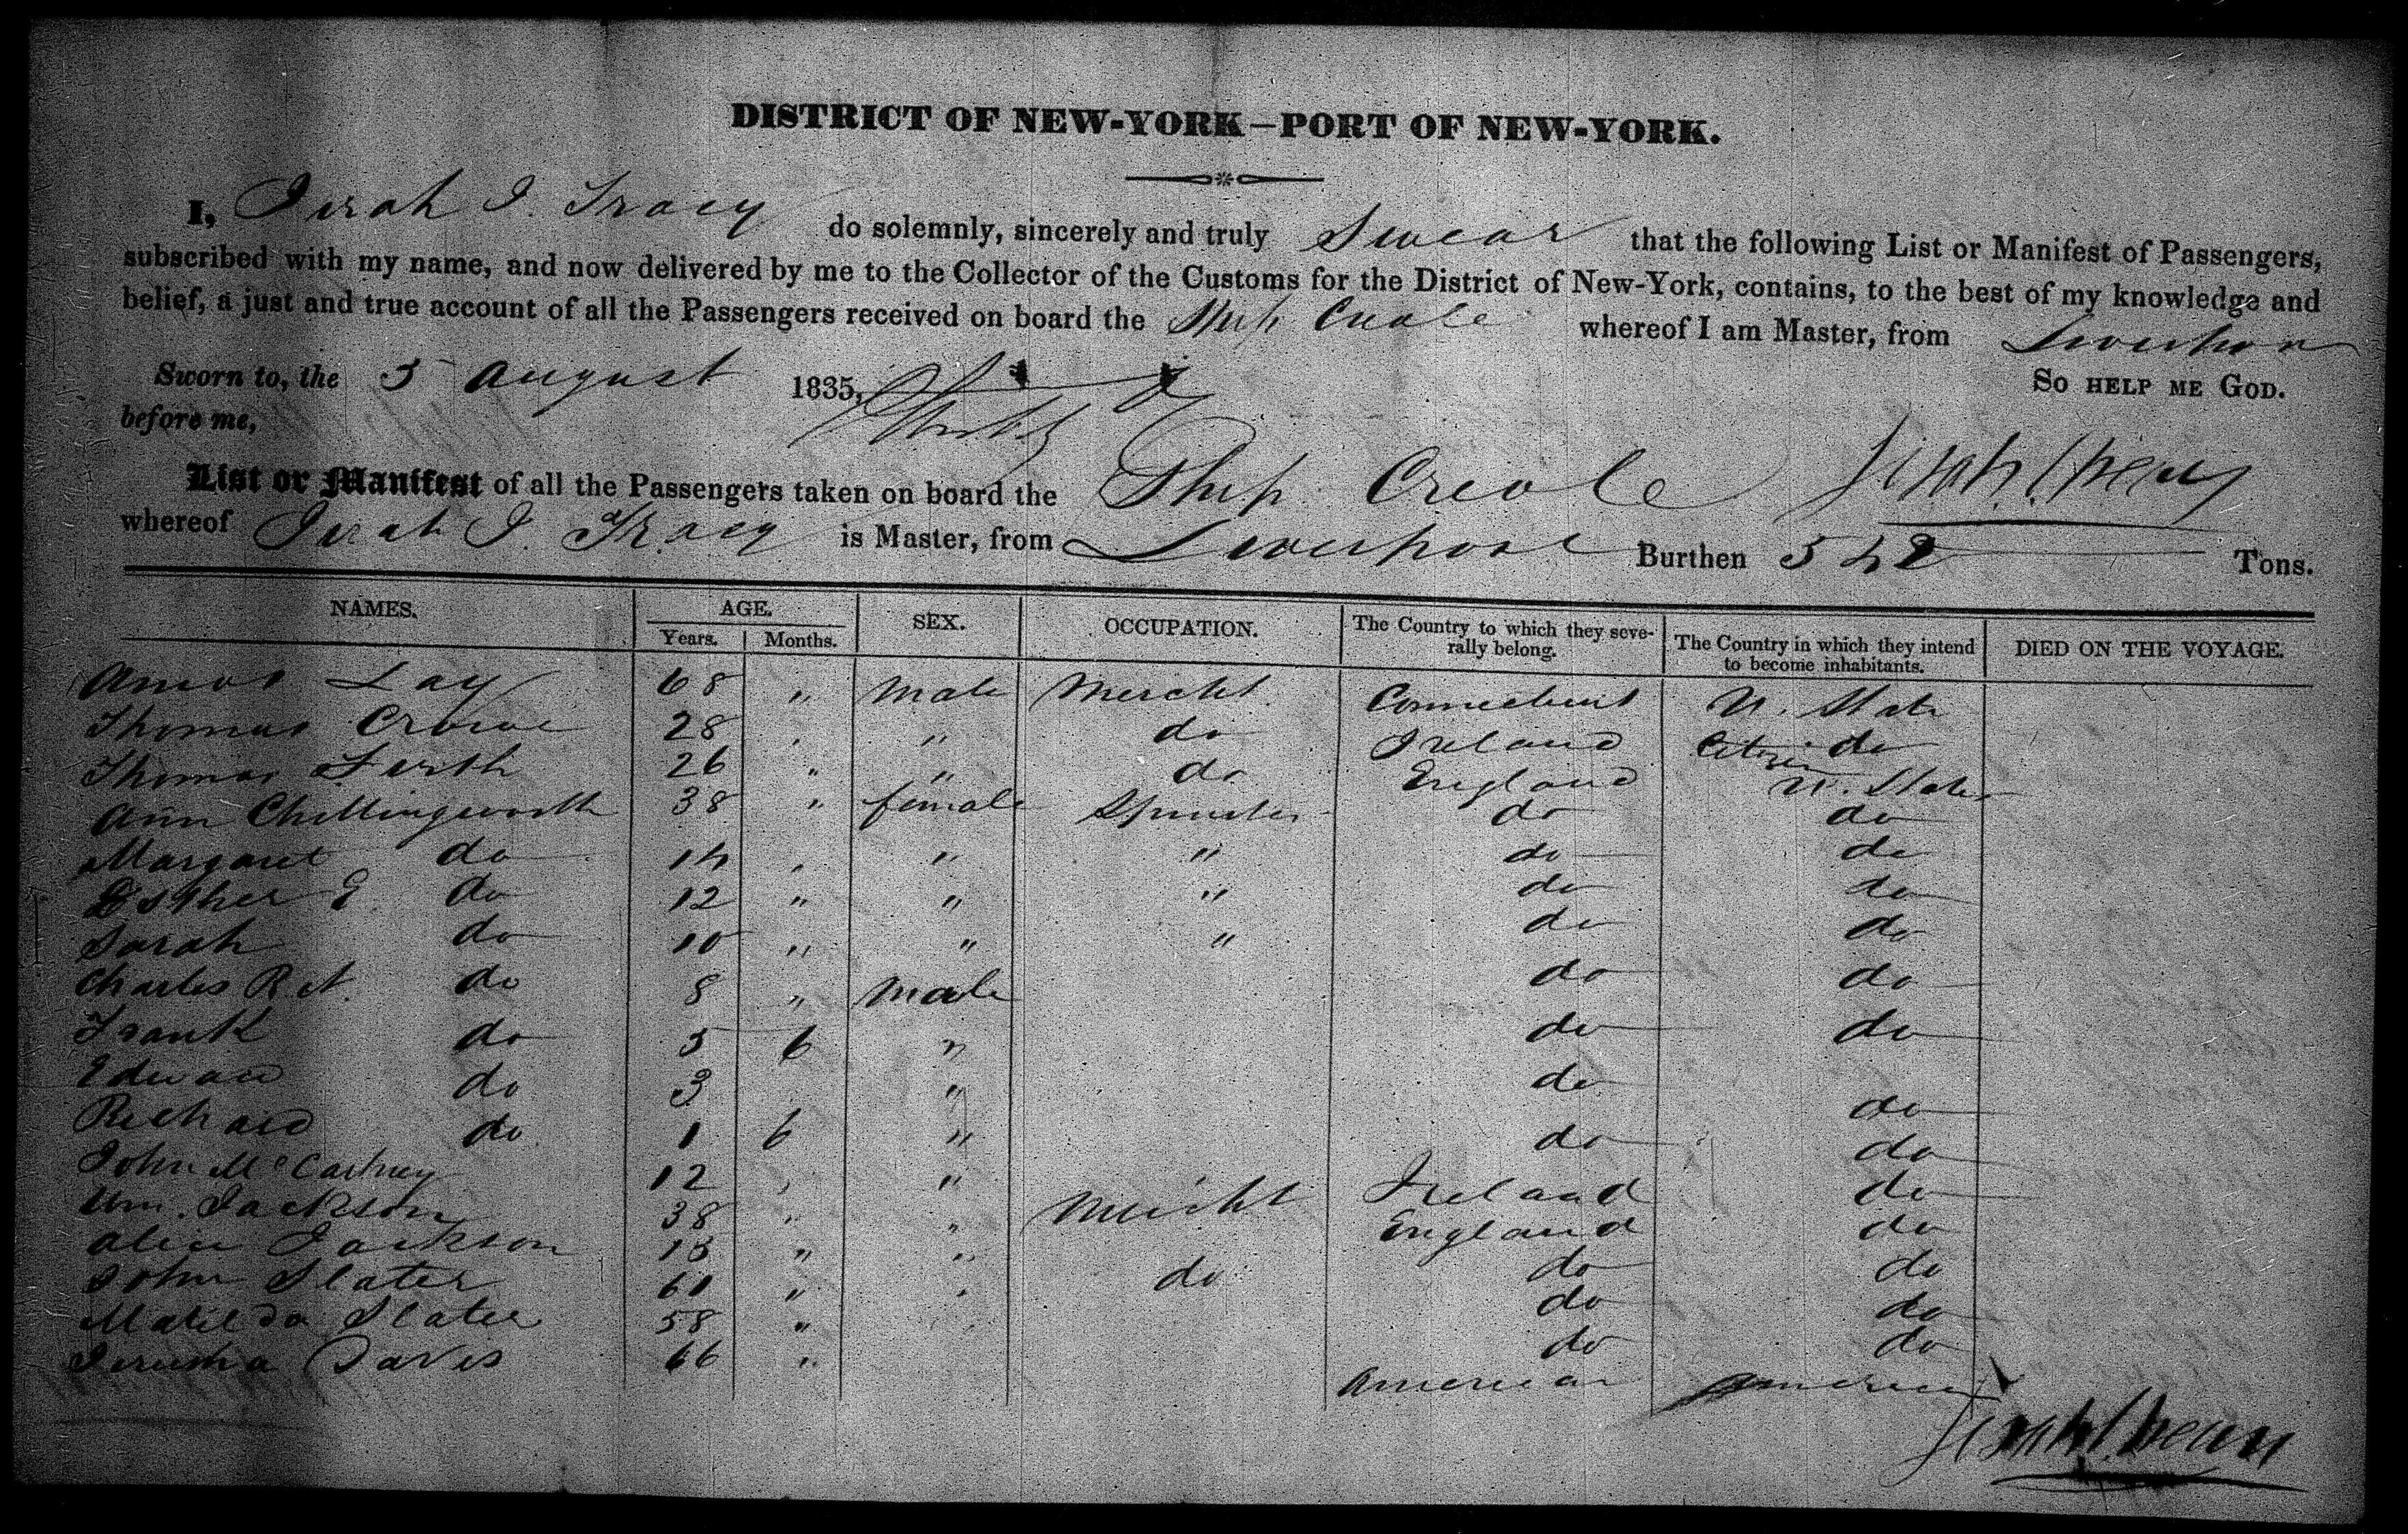 DISTRICT OF NEW-YORK—PORT OF NEW-YORK.
I, Jirah I. Tracy do solemnly, sincerely and truly Swear that the following List or Manifest of Passengers,
subscribed with my name, and now delivered by me to the Collector of the Customs for the District of New-York, contains, to the best of my knowledge and
belief, a just and true account of all the Passengers received on board the Ship Creole whereof I am Master, from Liverpool
Sworn to, the 5 August 1835, So HELP ME GOD.
before me,
List or Manifest of all the Passengers taken on board the Ship Creole
whereof Jirah I. Tracy is Master, from Liverpool Burthen 542 Tons.
NAMES. AGE. SEX. OCCUPATION. The Country to which they severally belong. The Country in which they intend to become inhabitants. DIED ON THE VOYAGE.
Years. Months.
Amos Lay 68 " Male Mercht Connecticut U. State
Thomas Crowe 28 " " do Ireland Citizen do
Thomas Firth 26 " " do England U. States
Ann Chillingworth 38 " female Spinster do do
Margaret do 14 " " " do do
Esther E do 12 " " " do do
Sarah do 10 " " " do do
Charles R. N. do 8 " Male do do
Frank do 5 6 " do do
Edward do 3 " do do
Richard do 1 6 " do do
John McCartney 12 " " Ireland do
Wm. Jackson 38 " " Mercht England do
Alice Jackson 13 " " do do
John Slater 61 " " do do do
Matilda Slater 58 " do do
Jerusha Davis 66 " American America